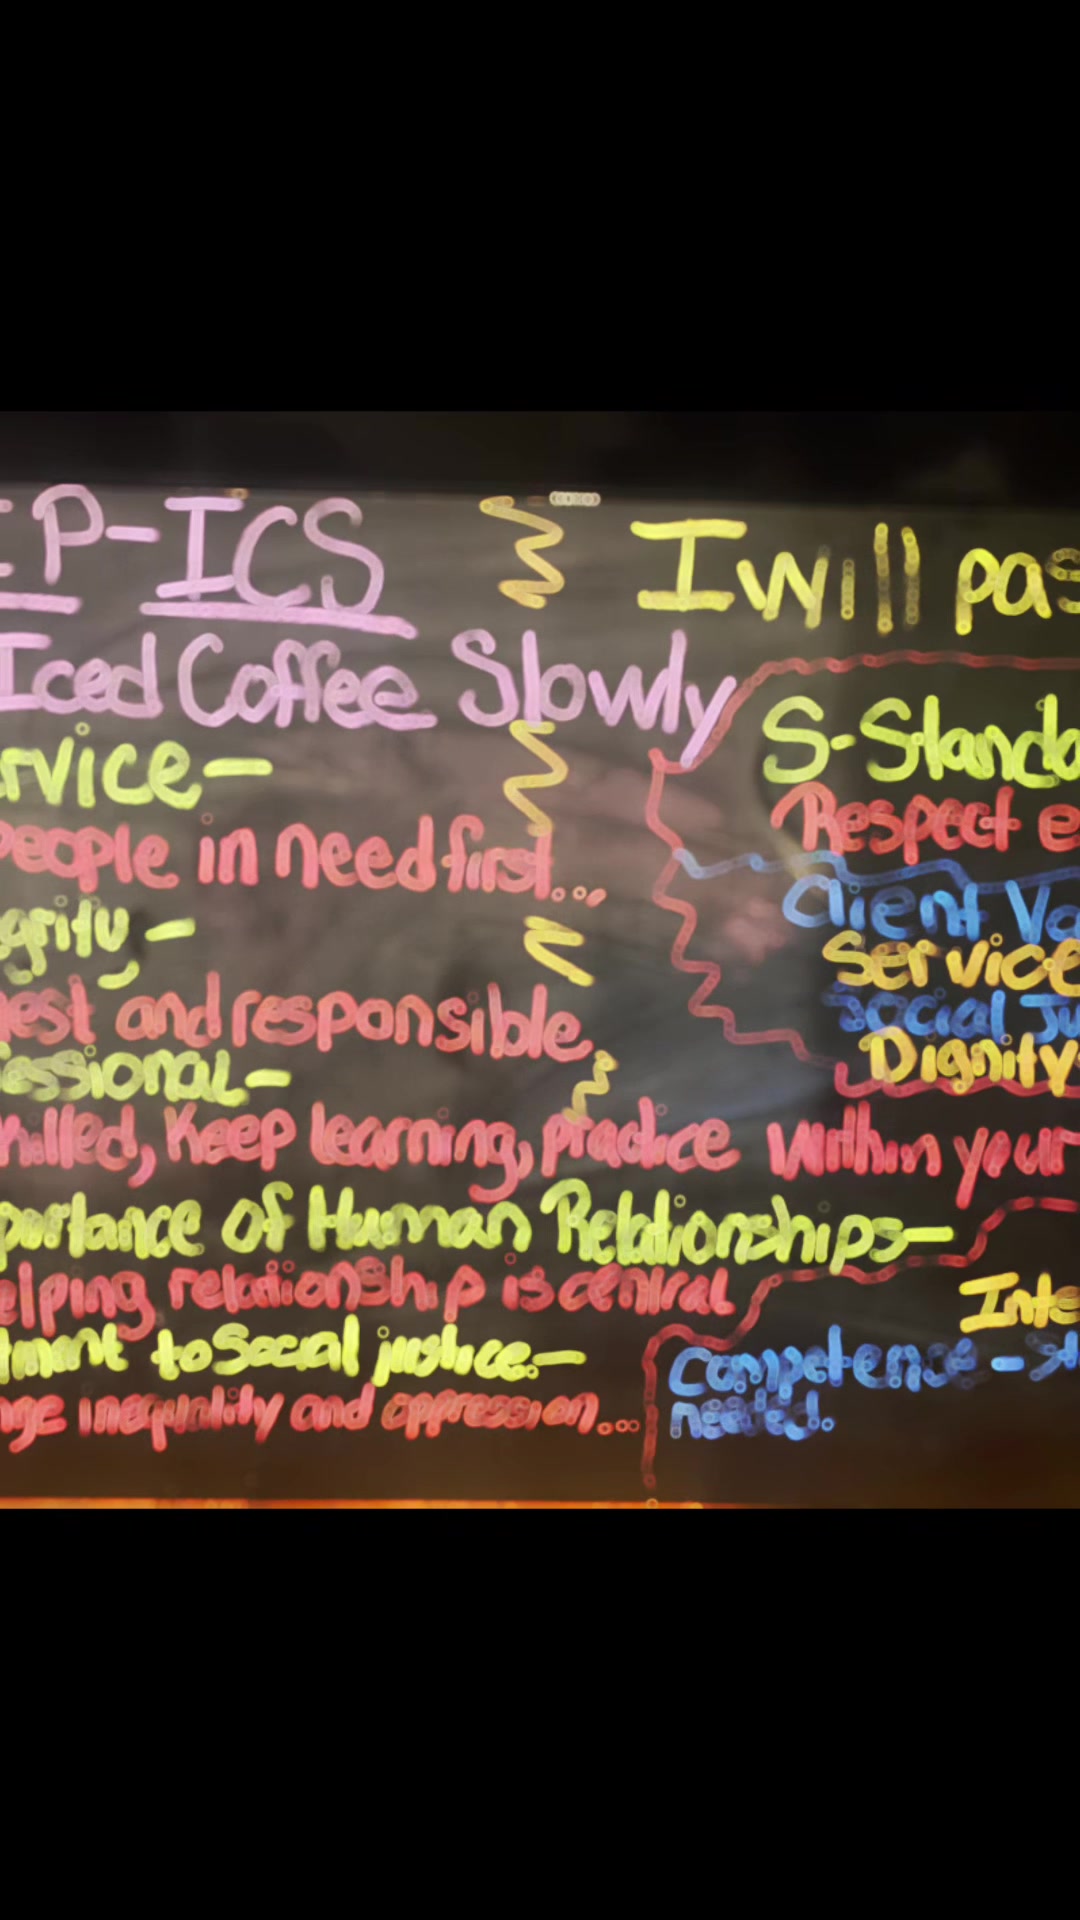 P-ICS
Iced Coffee Slowly
rvice-
people in need first...
grity-
est and responsible
essional-
killed, Keep learning, practice within your
portance of Human Relationships-
elping relationship is central
tment to Social justice-
nge inequality and oppression...
I will pas
S-Standa
Respect e
Client Va
Service
Social Ju
Dignity
Inte
Competence - St
needed.